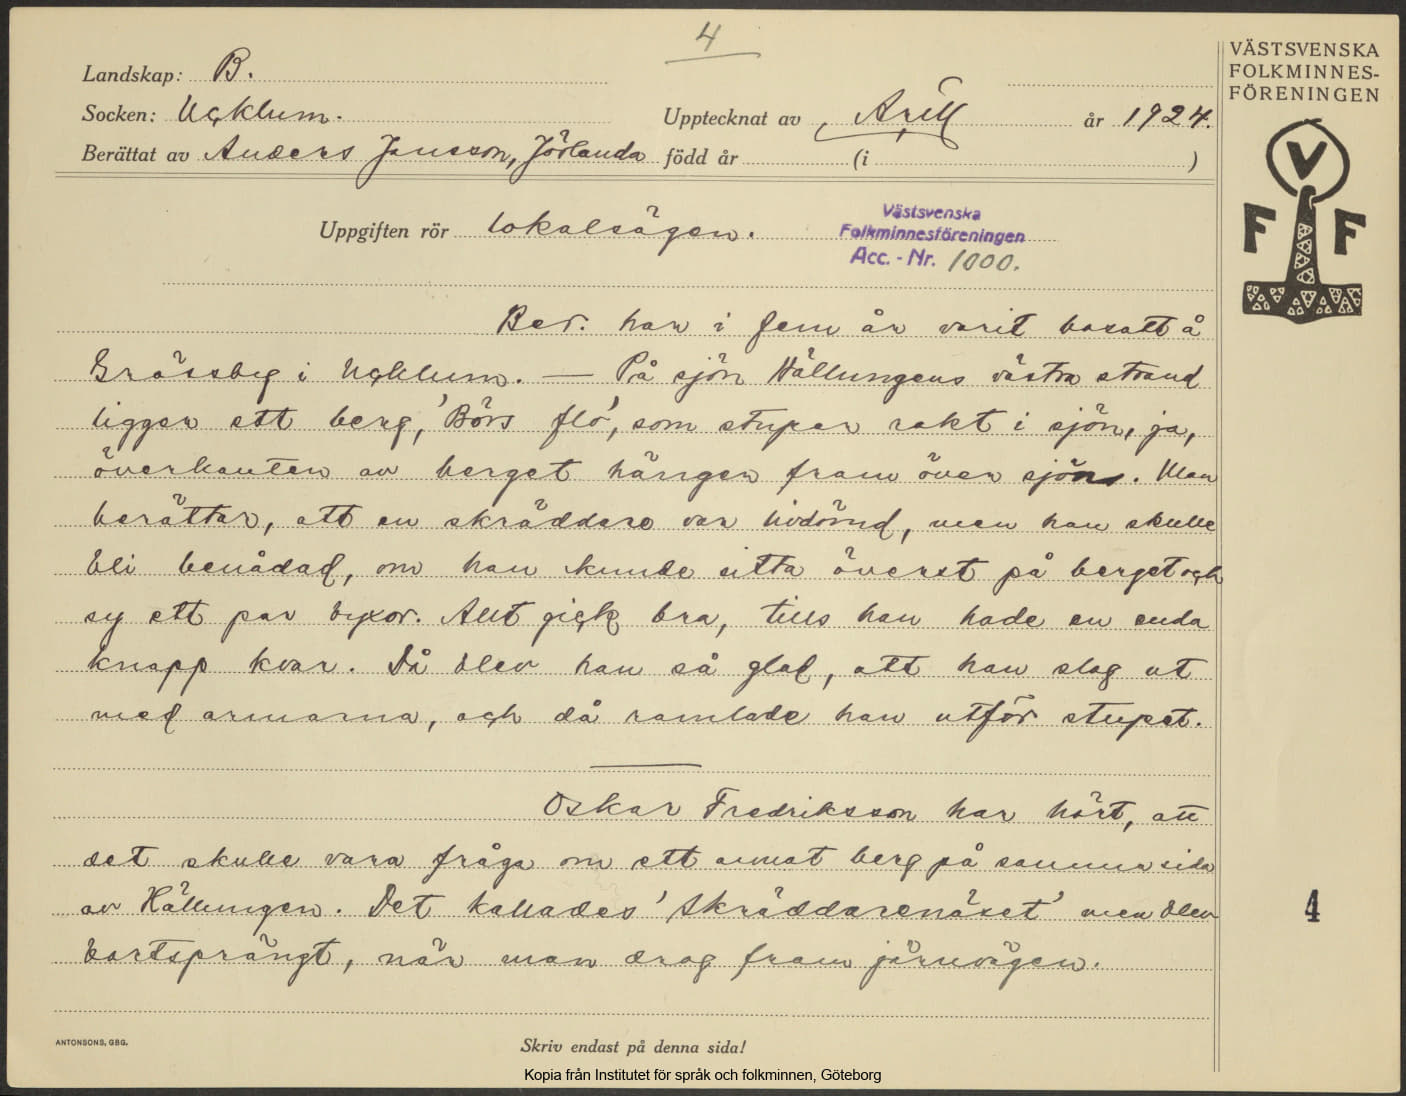 4
VÄSTSVENSKA
FOLKMINNES-
FÖRENINGEN
Landskap: B.
Socken: Ucklum.
Upptecknat av Arill år 1924.
Berättat av Anders Jansson, Jörlanda född år (i )
V
F F
Uppgiften rör lokalsägen.
Västsvenska
Folkminnesföreningen
Acc. - Nr. 1000.
Ber. har i fem år varit bosatt å
Grässby i Ucklum. — På sjön Hällungens västra strand
ligger ett berg, 'Börs flo', som stupar rakt i sjön, ja,
överkanten av berget hänger fram över sjön. Man
berättar, att en skräddare var livdömd, men han skulle
bli benådad, om han kunde sitta överst på berget och
sy ett par byxor. Allt gick bra, tills han hade en enda
knapp kvar. Då blev han så glad, att han slog ut
med armarna, och då ramlade han utför stupet.
Oskar Fredriksson har hört, att
det skulle vara fråga om ett annat berg på samma sida
av Hällungen. Det kallades 'Skräddarenäset' men blev
bortsprängt, när man drog fram järnvägen.
4
ANTONSONS, GBG.
Skriv endast på denna sida!
Kopia från Institutet för språk och folkminnen, Göteborg